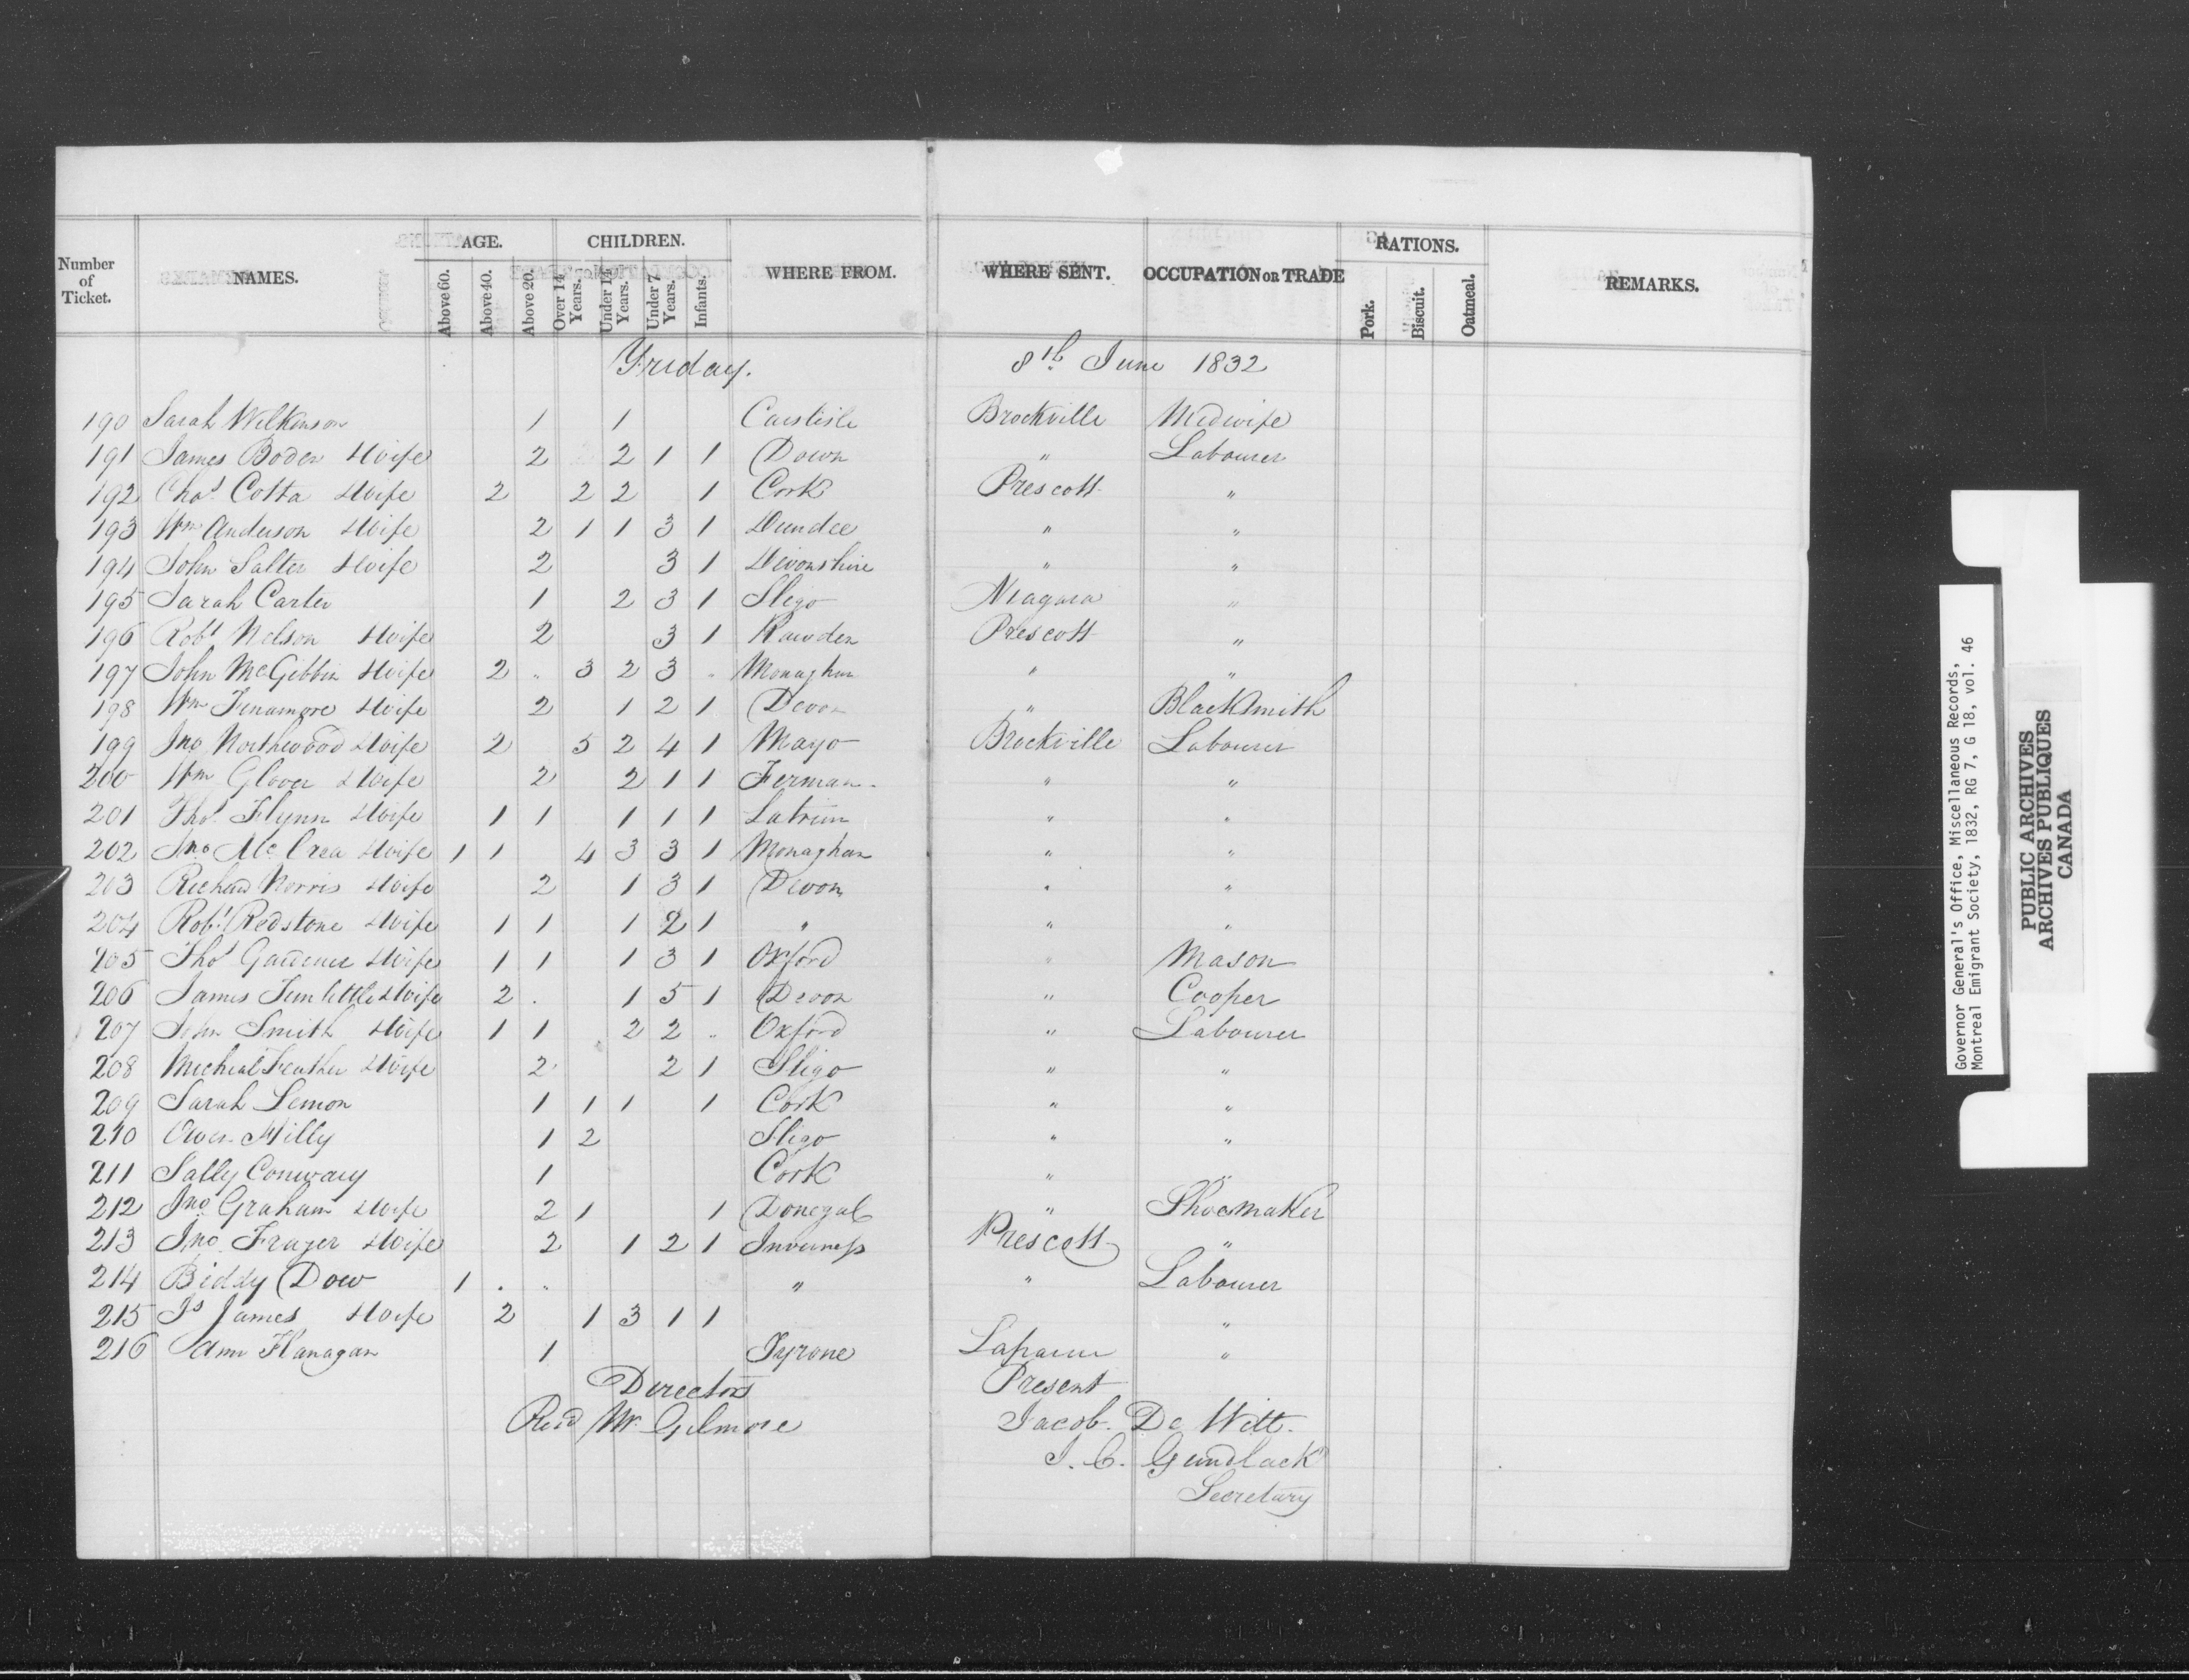 Number of Ticket. NAMES. AGE. Above 60. Above 40. Above 20. CHILDREN. Over 14 Years. Under 14 Years. Under 7 Years. Infants. WHERE FROM. WHERE SENT. OCCUPATION OR TRADE RATIONS. Pork. Biscuit. Oatmeal. REMARKS.
Friday. 8th June 1832
190 Sarah Wilkinson 1 1 Carslisle Brockville Midwife
191 James Boden & Wife 2 2 1 1 Down " Labourer
192 Chas. Cotta & Wife 2 2 2 1 Cork Prescott "
193 Wm Anderson & Wife 2 1 1 3 1 Dundee " "
194 John Salter & Wife 2 3 1 Devonshire " "
195 Sarah Carter 1 2 3 1 Sligo Niagara "
196 Robt Nelson & Wife 2 3 1 Rawden Prescott "
197 John McGibbin & Wife 2 " 3 2 3 " Monaghan " "
198 Wm Finamore & Wife 2 1 2 1 Devon " Blacksmith
199 Jno Northwood & Wife 2 5 2 4 1 Mayo Brockville Labourer
200 Wm Glover & Wife 2 2 1 1 Ferman- " "
201 Thos. Flynn & Wife 1 1 1 1 1 Latrim " "
202 Jno McCrea & Wife 1 1 4 3 3 1 Monaghan " "
203 Richard Norris & Wife 2 1 3 1 Devon " "
204 Robt Redstone & Wife 1 1 1 2 1 " " "
205 Thos Gardener & Wife 1 1 1 3 1 Oxford " Mason
206 James & Wife 2 . 1 5 1 Devon " Cooper
207 John Smith & Wife 1 1 2 2 " Oxford " Labourer
208 Micheal Feather & Wife 2 2 1 Sligo " "
209 Sarah Lemon 1 1 1 1 Cork " "
210 Owen Hilly 1 2 Sligo " "
211 Sally Conway 1 Cork " "
212 Jno Graham & Wife 2 1 1 Donegal " Shoemaker
213 Jno Frazer & Wife 2 1 2 1 Inverness Prescott "
214 Biddy Dow 1 . " " " Labourer
215 Js James & Wife 2 1 3 1 1 "
216 Ann Flanagan 1 Tyrone "
Directors Present
Revd Mr. Gilmore Jacob. De Witt.
J. C. Gundlack
Secretary
Governor General's Office, Miscellaneous Records,
Montreal Emigrant Society, 1832, RG 7, G 18, vol. 46
PUBLIC ARCHIVES
ARCHIVES PUBLIQUES
CANADA